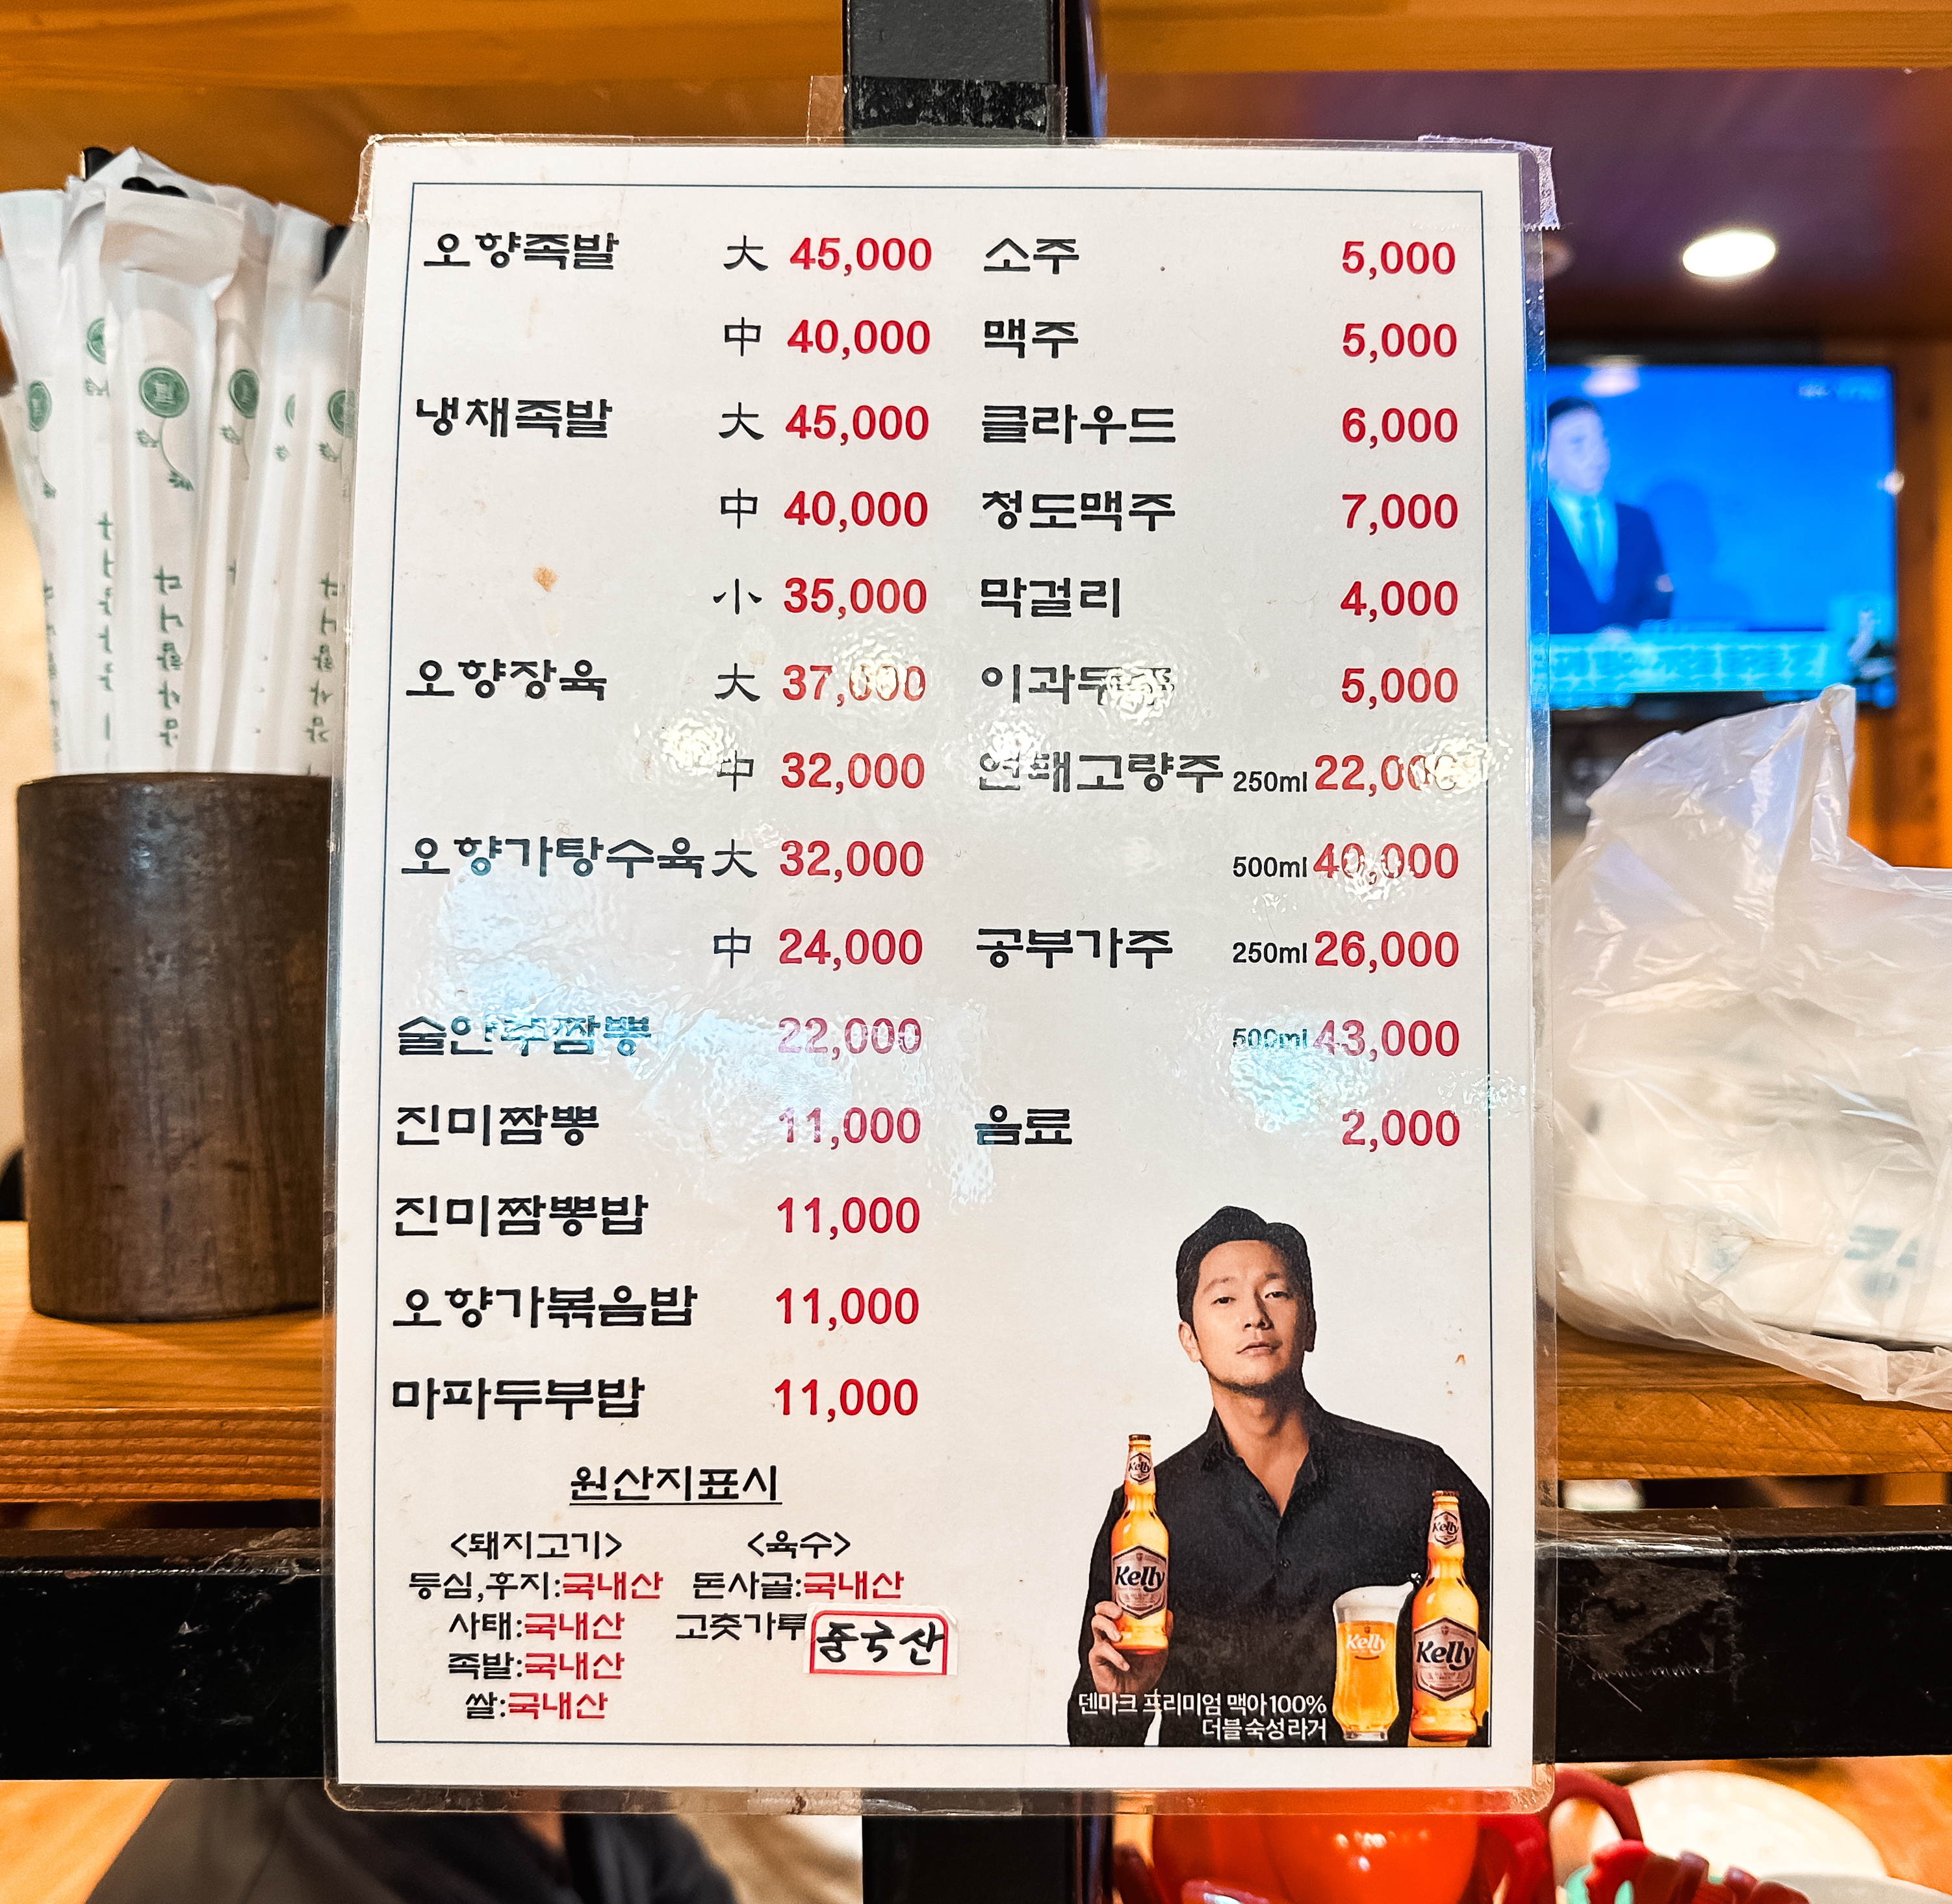 오향족발 大 45,000
中 40,000
냉채족발 大 45,000
中 40,000
小 35,000
오향장육 大 37,000
中 32,000
오향가탕수육 大 32,000
中 24,000
술안주짬뽕 22,000
진미짬뽕 11,000
진미짬뽕밥 11,000
오향가볶음밥 11,000
마파두부밥 11,000
소주 5,000
맥주 5,000
클라우드 6,000
청도맥주 7,000
막걸리 4,000
이과두주 5,000
연태고량주 250ml 22,000
500ml 40,000
공부가주 250ml 26,000
500ml 43,000
음료 2,000
원산지표시
<돼지고기>
등심,후지:국내산
사태:국내산
족발:국내산
쌀:국내산
<육수>
돈사골:국내산
고춧가루 중국산
Kelly
Kelly
Kelly
Kelly
Kelly
덴마크 프리미엄 맥아100%
더블숙성라거